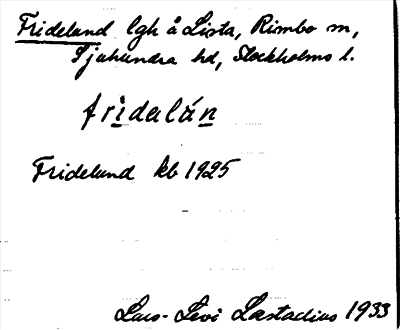 Fridelund lgh å Lista, Rimbo sn,
Sjuhundra hd, Stockholms l.
fridalán
Fridelund kb 1925
Lars-Levi Læstadius 1933